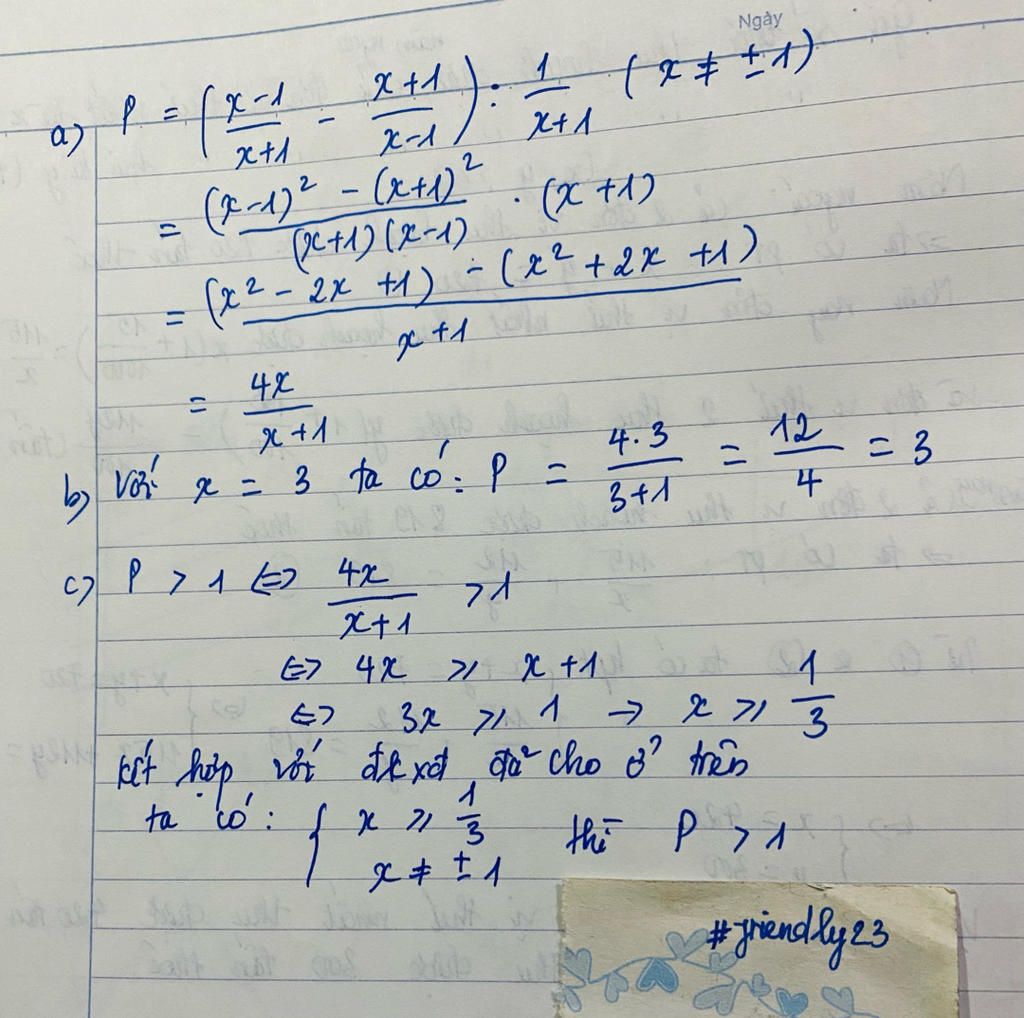 Ngày
a) P = (x-1/x+1 - x+1/x-1) : 1/x+1 (x ≠ ±1)
= (x-1)² - (x+1)²/(x+1)(x-1) . (x+1)
= (x² - 2x + 1) - (x² + 2x + 1)/x+1
= 4x/x+1
b) Với x = 3 ta có: P = 4.3/3+1 = 12/4 = 3
c) P > 1 ⇔ 4x/x+1 > 1
⇔ 4x ⩾ x+1
⇔ 3x ⩾ 1 → x ⩾ 1/3
kết hợp với đk xđ đã cho ở trên
ta có: { x ⩾ 1/3 x ≠ ±1 thì P > 1
#friendly23